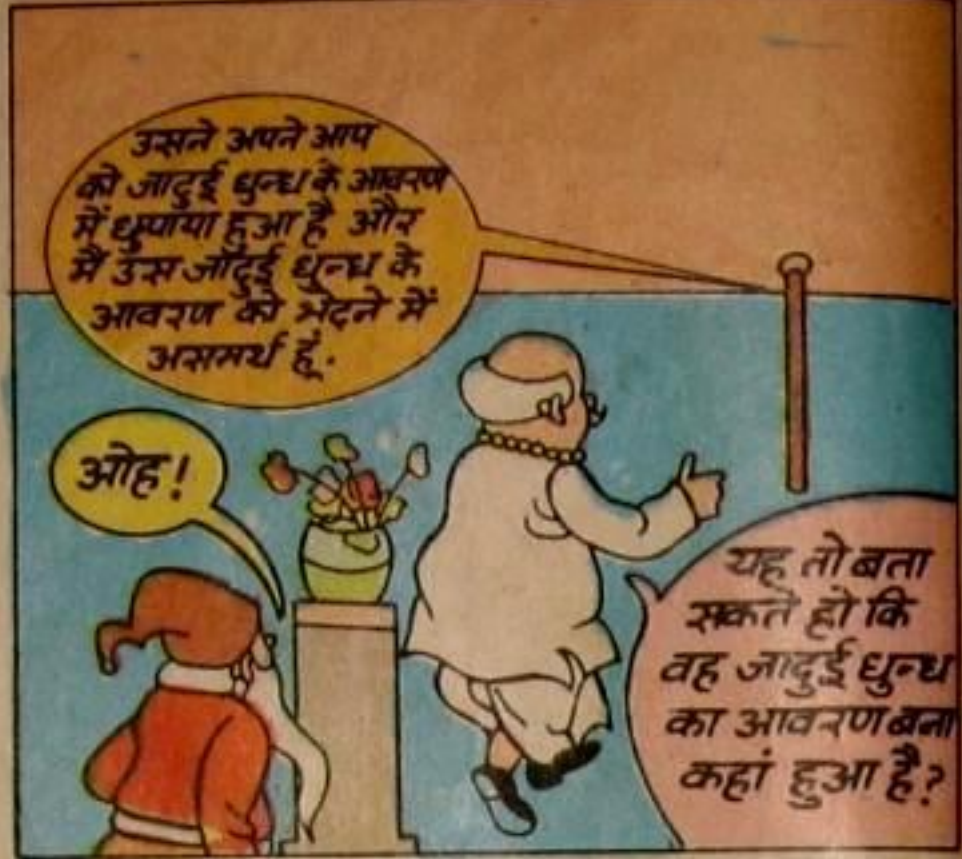 उसने अपने आप
को जादुई धुन्ध के आवरण
में छुपाया हुआ है और
मैं उस जादुई धुन्ध के
आवरण को भेदने में
असमर्थ हूं.
ओह!
यह तो बता
सकते हो कि
वह जादुई धुन्ध
का आवरण बना
कहां हुआ है?